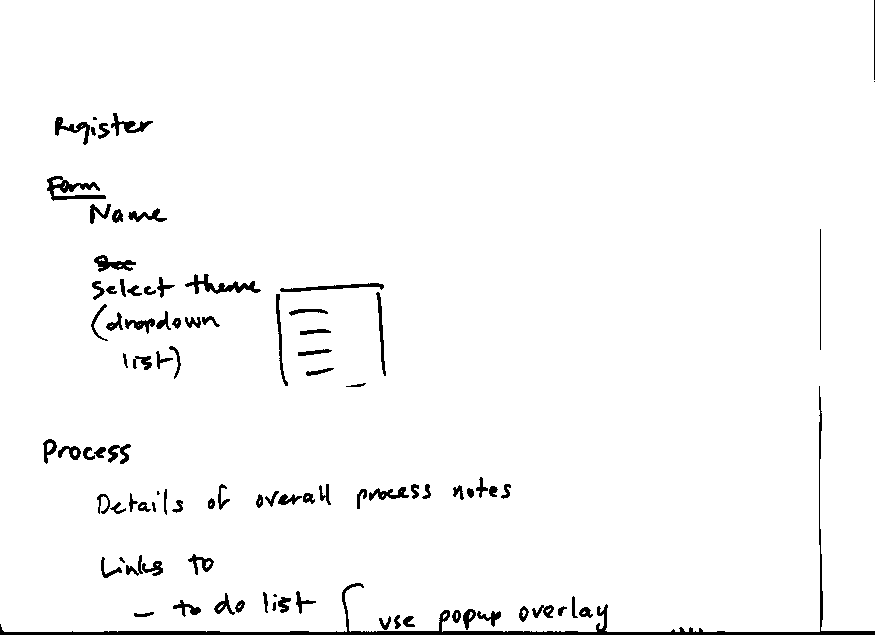 Register
Form
Name
Select theme
(dropdown
list)
Process
Details of overall process notes
Links to
- to do list
use popup overlay